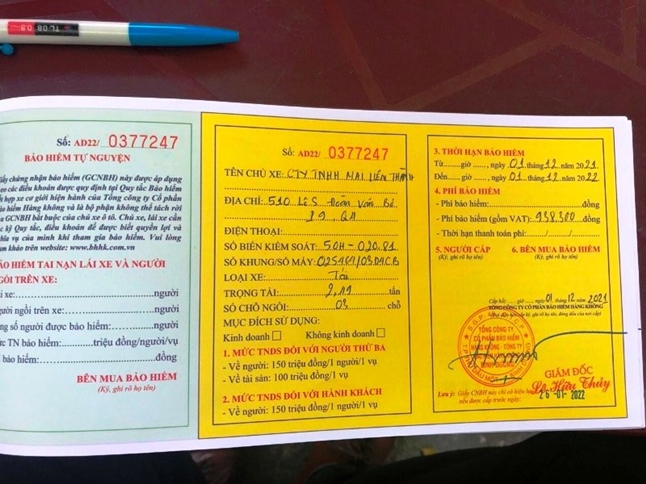 TL-08 0.8
Số: AD22/ 0377247
BẢO HIỂM TỰ NGUYỆN
Giấy chứng nhận bảo hiểm (GCNBH) này được áp dụng
theo các điều khoản được quy định tại Quy tắc Bảo hiểm
hợp xe cơ giới hiện hành của Tổng công ty Cổ phần
Bảo hiểm Hàng không và là bộ phận không thể tách rời
GCNBH bắt buộc của chủ xe ô tô. Chủ xe, lái xe cần
kỹ Quy tắc, điều khoản để được biết quyền lợi và
nghĩa vụ của mình khi tham gia bảo hiểm. Vui lòng
tham khảo trên website: www.bhhk.com.vn
BẢO HIỂM TAI NẠN LÁI XE VÀ NGƯỜI
NGỒI TRÊN XE:
xe:...người
người ngồi trên xe:...người
số người được bảo hiểm:...người
TN bảo hiểm:...triệu đồng/người/vụ
bảo hiểm:...đồng
BÊN MUA BẢO HIỂM
(Ký, ghi rõ họ tên)
Số: AD22/ 0377247
TÊN CHỦ XE: CTY TNHH MAI LIÊN THÀNH
ĐỊA CHỈ: 510 Đoàn Văn Bơ
ĐIỆN THOẠI:
SỐ BIỂN KIỂM SOÁT: 50H - 020.81
SỐ KHUNG/SỐ MÁY:
LOẠI XE: Tải
TRỌNG TẢI: 2,19 tấn
SỐ CHỖ NGỒI: 03 chỗ
MỤC ĐÍCH SỬ DỤNG:
Kinh doanh Không kinh doanh
1. MỨC TNDS ĐỐI VỚI NGƯỜI THỨ BA
- Về người: 150 triệu đồng/1 người/1 vụ
- Về tài sản: 100 triệu đồng/1 vụ
2. MỨC TNDS ĐỐI VỚI HÀNH KHÁCH
- Về người: 150 triệu đồng/1 người/1 vụ
3. THỜI HẠN BẢO HIỂM
Từ.....giờ ......, ngày 01 tháng 12 năm 2021
Đến.....giờ ......, ngày 01 tháng 12 năm 2022
4. PHÍ BẢO HIỂM
- Phí bảo hiểm:...đồng
- Phí bảo hiểm (gồm VAT): 938.300 đồng
- Thời hạn thanh toán phí:....../....../......
5. NGƯỜI CẤP 6. BÊN MUA BẢO HIỂM
(Ký, ghi rõ họ tên) (Ký, ghi rõ họ tên)
Cấp hồi:.... giờ...., ngày 01 / 12 năm 2021
TỔNG CÔNG TY CỔ PHẦN BẢO HIỂM HÀNG KHÔNG
TỔNG CÔNG TY
CỔ PHẦN BẢO HIỂM
HÀNG KHÔNG - CÔNG TY
BÌNH DƯƠNG
GIÁM ĐỐC
Lê Hữu Thủy
Lưu ý: Giấy CNBH này chỉ có hiệu
nếu được cấp trước ngày:
26 -01- 2022